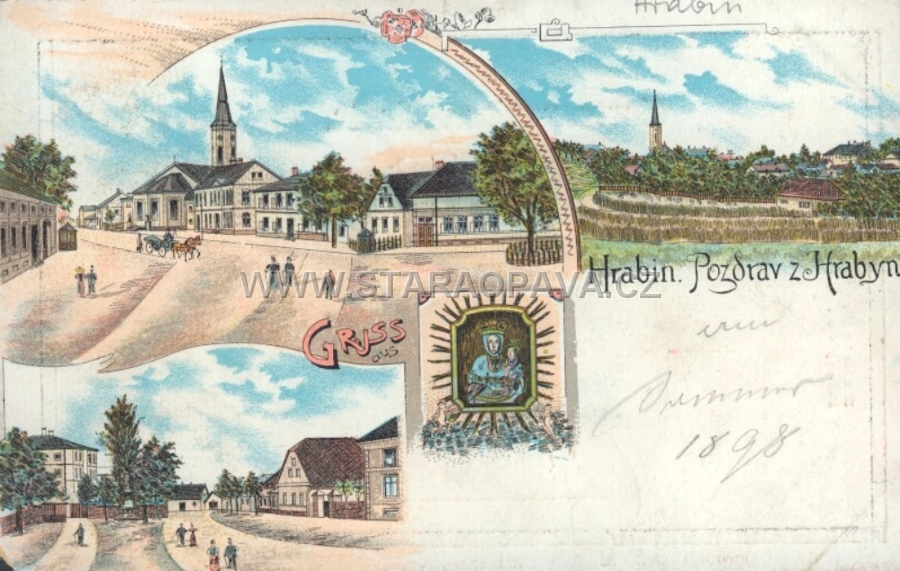 Hrabin
WWW.STARAOPAVA.CZ
GRUSS
aus
Hrabin. Pozdrav z Hrabyn
im
Sommer
1898